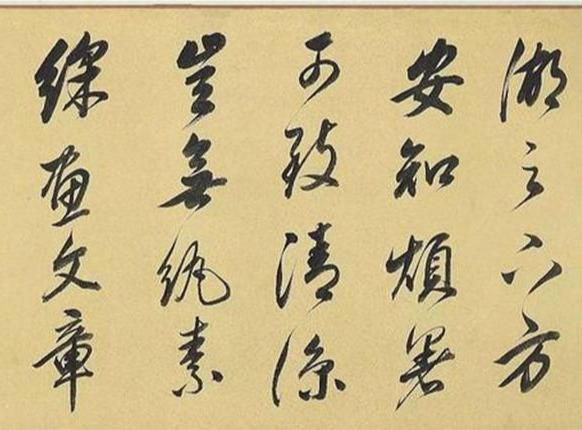 湖之下方
安知煩暑
可致清涼
豈無紈素
綵畫文章